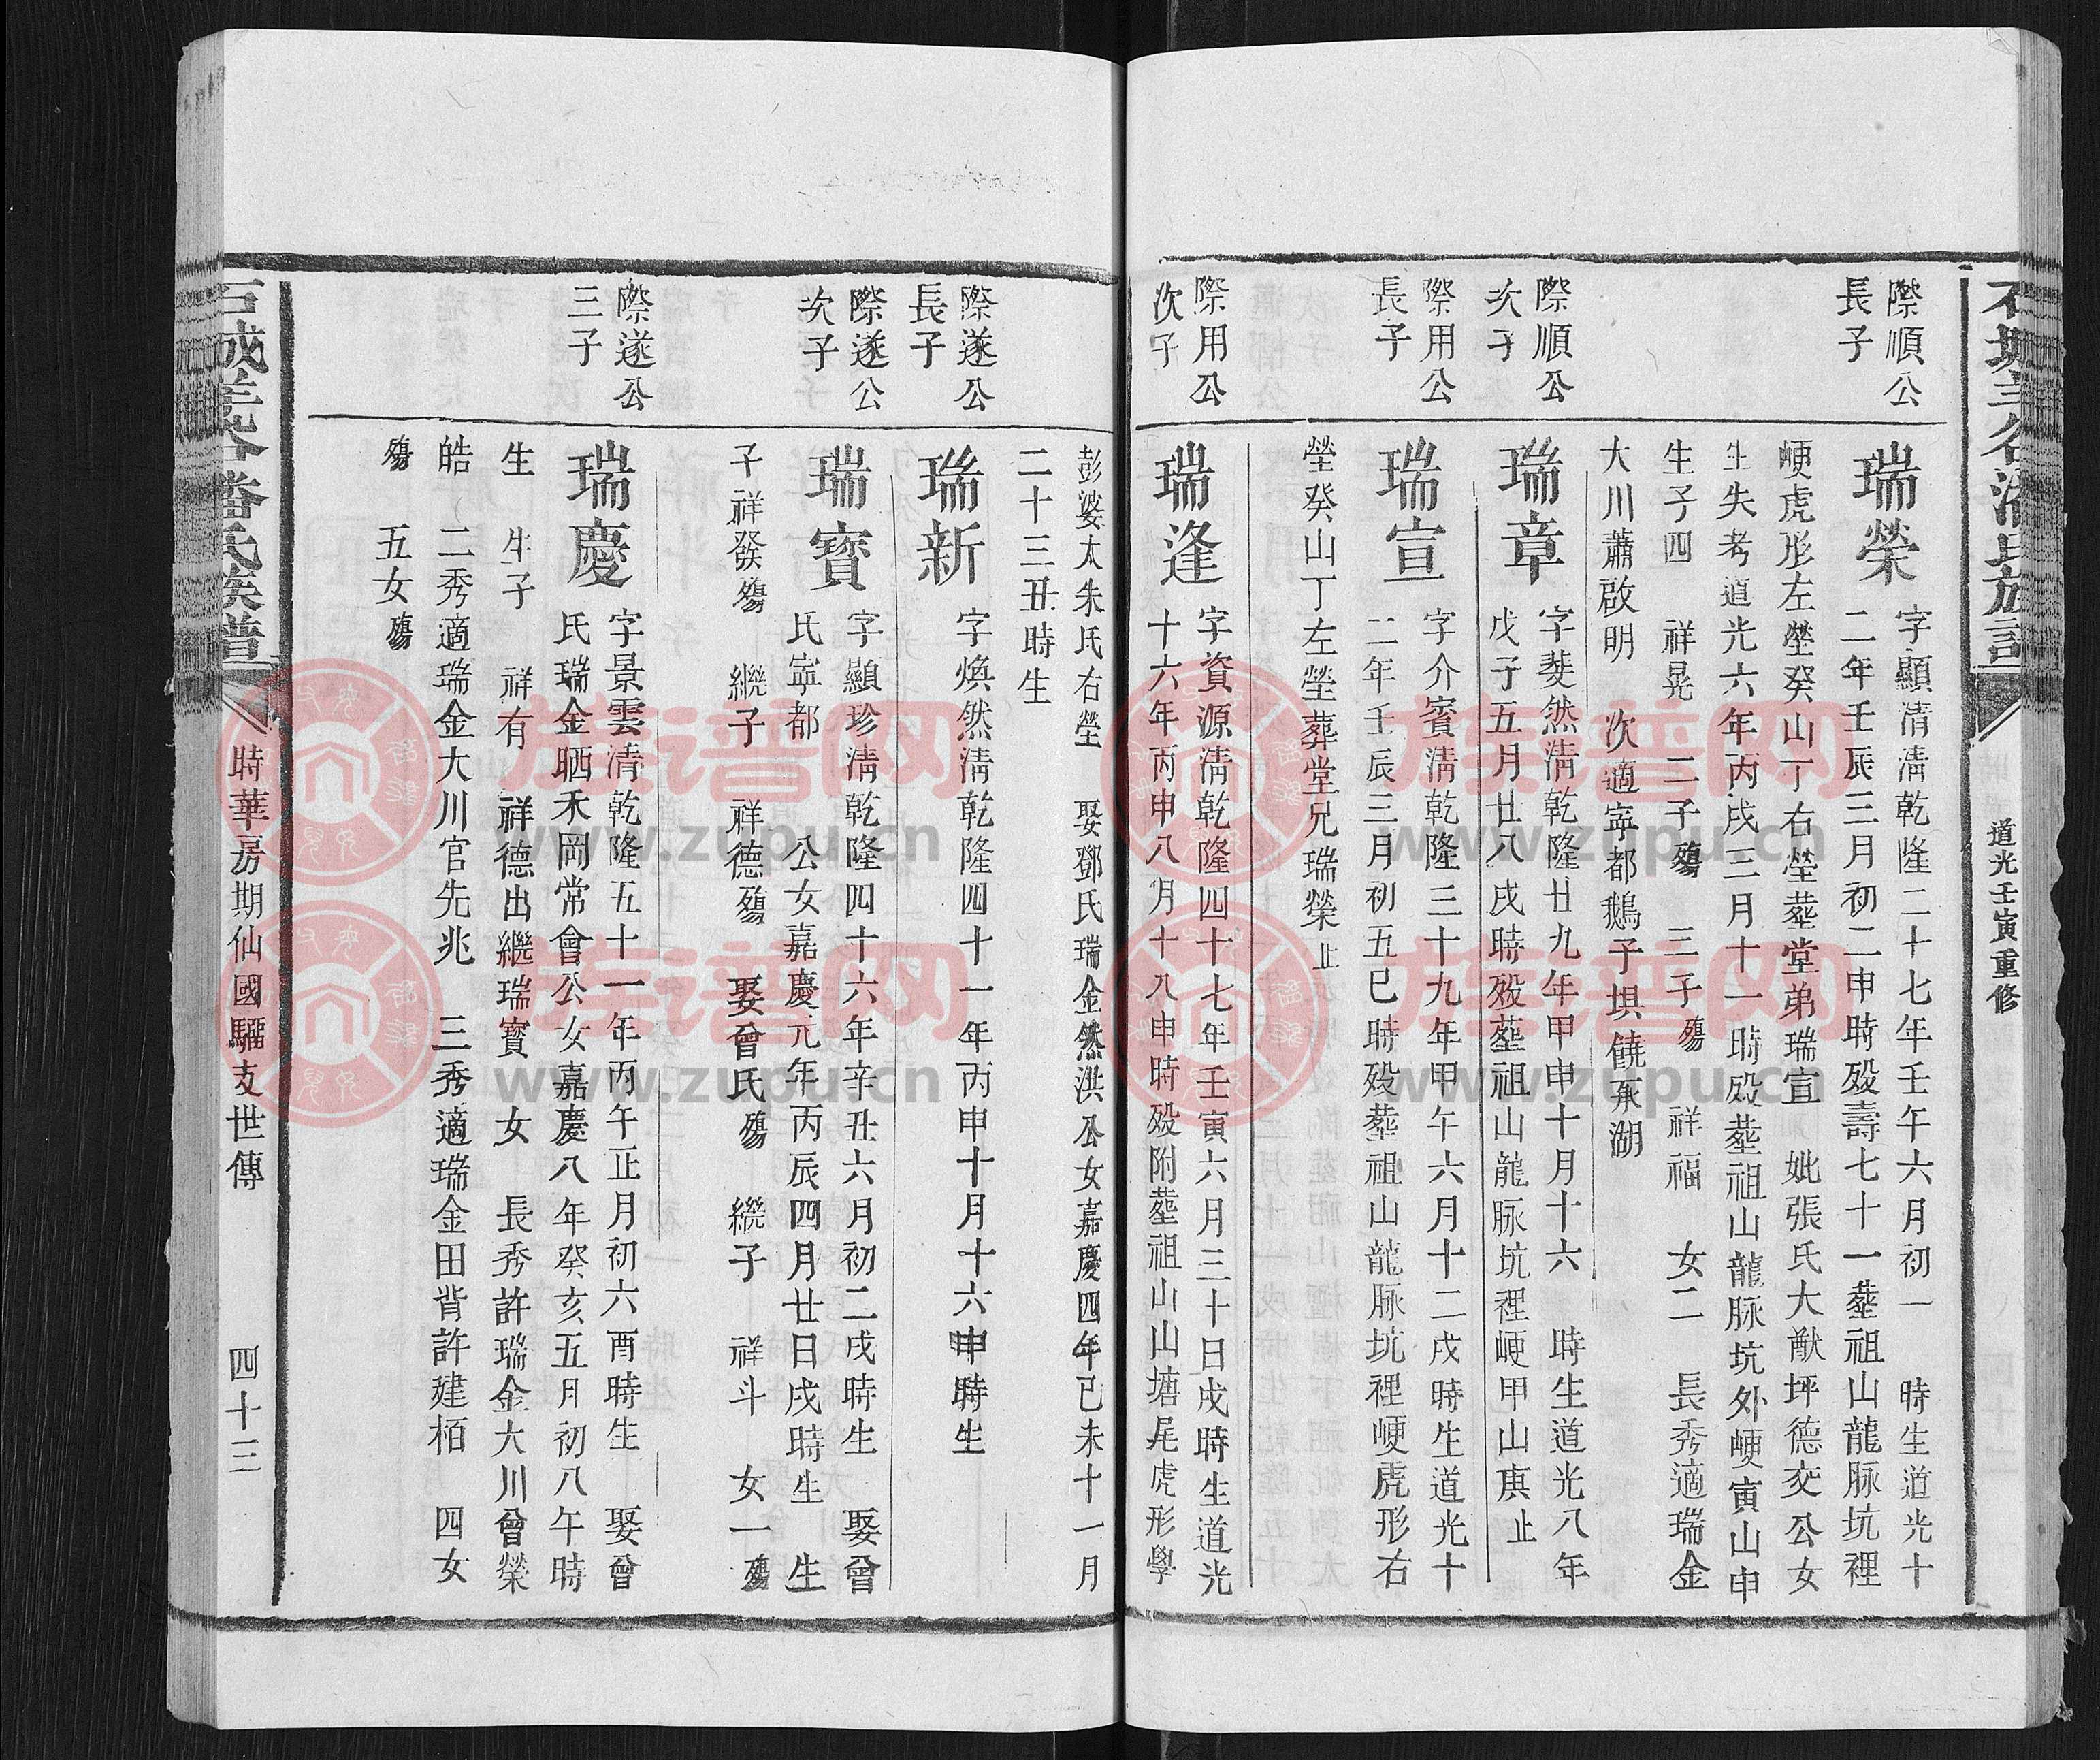 道光壬寅重修
際順公
長子
瑞榮
字顯清清乾隆二十七年壬午六月初一　時生道光十
二年壬辰三月初二申時殁壽七十一塟祖山龍脉坑裡
峺虎形左塋癸山丁右塋塟堂弟瑞宣　妣張氏大猷坪德交公女
生失考道光六年丙戌三月十一時殁塟祖山龍脉坑外峺寅山申
生子四　祥晃　二子殤　三子殤　祥福　女二　長秀適瑞金
大川蕭啟明　次適寧都鵝子埧饒承湖
際順公
次子
瑞章
字斐然淸乾隆廿九年甲申十月十六　時生道光八年
戊子五月廿八戌時殁塟祖山龍脉坑裡峺甲山庚止
際用公
長子
瑞宣
字介賓淸乾隆三十九年甲午六月十二戌時生道光十
二年壬辰三月初五巳時殁塟祖山龍脉坑裡峺虎形右
塋癸山丁左塋葬堂兄瑞榮止
際用公
次子
瑞逢
字資源淸乾隆四十七年壬寅六月三十日戌時生道光
十六年丙申八月十八申時殁附塟祖山山塘尾虎形學
彭婆太朱氏右塋　娶鄧氏瑞金然洪公女嘉慶四年己未十一月
二十三丑時生
際遂公
長子
瑞新
字煥然淸乾隆四十一年丙申十月十六申時生
際遂公
次子
瑞寶
字顯珍淸乾隆四十六年辛丑六月初二戌時生　娶曾
氏寧都　公女嘉慶元年丙辰四月廿日戌時生　生
子祥發殤　繼子　祥德殤　娶曾氏殤　繼子　祥斗　女一殤
際遂公
三子
瑞慶
字景雲淸乾隆五十一年丙午正月初六酉時生　娶曾
氏瑞金晒禾岡常會公女嘉慶八年癸亥五月初八午時
生　生子　祥有　祥德出繼瑞寶　女　長秀許瑞金大川曾榮
皓　二秀適瑞金大川官先兆　三秀適瑞金田背許建栢　四女
殤　五女殤
石城羊谷潘氏族譜
時華房期仙國驑支世傳
四十三
族谱网
www.zupu.cn
族谱网
www.zupu.cn
族谱网
www.zupu.cn
族谱网
www.zupu.cn